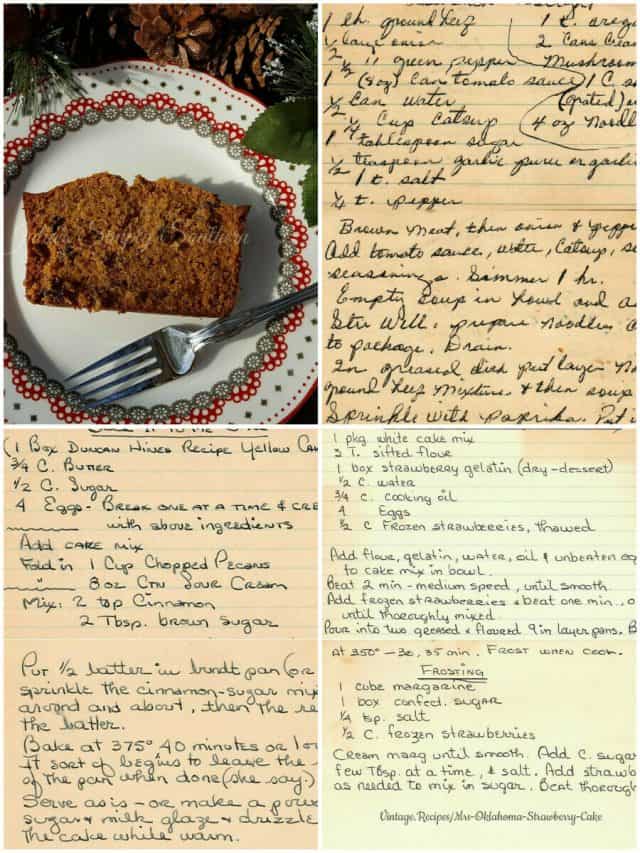 Simply Southern
1 lb. ground beef
1 large onion
1/2 green pepper
1 (8 oz) can tomato sauce
1/2 can water
1/4 cup catsup
1 tablespoon sugar
1/2 teaspoon garlic puree or garlic
1 t. salt
1/4 t. pepper
1 t. oreg
2 cans crea
mushroom
1 C. s
(grated)
4 oz noodl
Brown meat, then onion & peppe
Add tomato sauce, water, catsup, s
seasonings. Simmer 1 hr.
Empty soup in bowl and a
Stir well. prepare noodles a
to package. Drain.
In greased dish put layer no
ground beef mixture & then soup
Sprinkle with paprika. Put i
(1 Box Duncan Hines Recipe Yellow Ca
3/4 C. Butter
1/2 C. Sugar
4 Eggs - Break one at a time & cre
with above ingredients
Add cake mix
Fold in 1 Cup Chopped Pecans
8 oz Ctn Sour Cream
Mix: 2 tsp Cinnamon
2 Tbsp. brown sugar
Put 1/2 batter in bundt pan (or
sprinkle the cinnamon-sugar mix
around and about, then the re
the batter.
(Bake at 375° 40 minutes or lon
It sort of begins to leave the
of the pan when done (she say.)
Serve as is - or make a pow
sugar & milk glaze & drizzle
the cake while warm.
1 pkg white cake mix
3 T. sifted flour
1 box strawberry gelatin (dry-dessert)
1/2 C. water
3/4 C. cooking oil
4 Eggs
1/2 C Frozen strawberries, thawed
Add flour, gelatin, water, oil & unbeaten eg
to cake mix in bowl.
Beat 2 min - medium speed, until smooth.
Add frozen strawberries & beat one min., o
until thoroughly mixed
Pour into two greased & floured 9 in layer pans. B
at 350° - 30, 35 min. Frost when cool.
Frosting
1 cube margarine
1 box confect. sugar
1/4 tsp. salt
1/2 C. frozen strawberries
Cream marg until smooth. Add C. sugar
few Tbsp. at a time, & salt. Add strawb
as needed to mix in sugar. Beat thorough
Vintage.Recipes/Mrs-Oklahoma-Strawberry-Cake